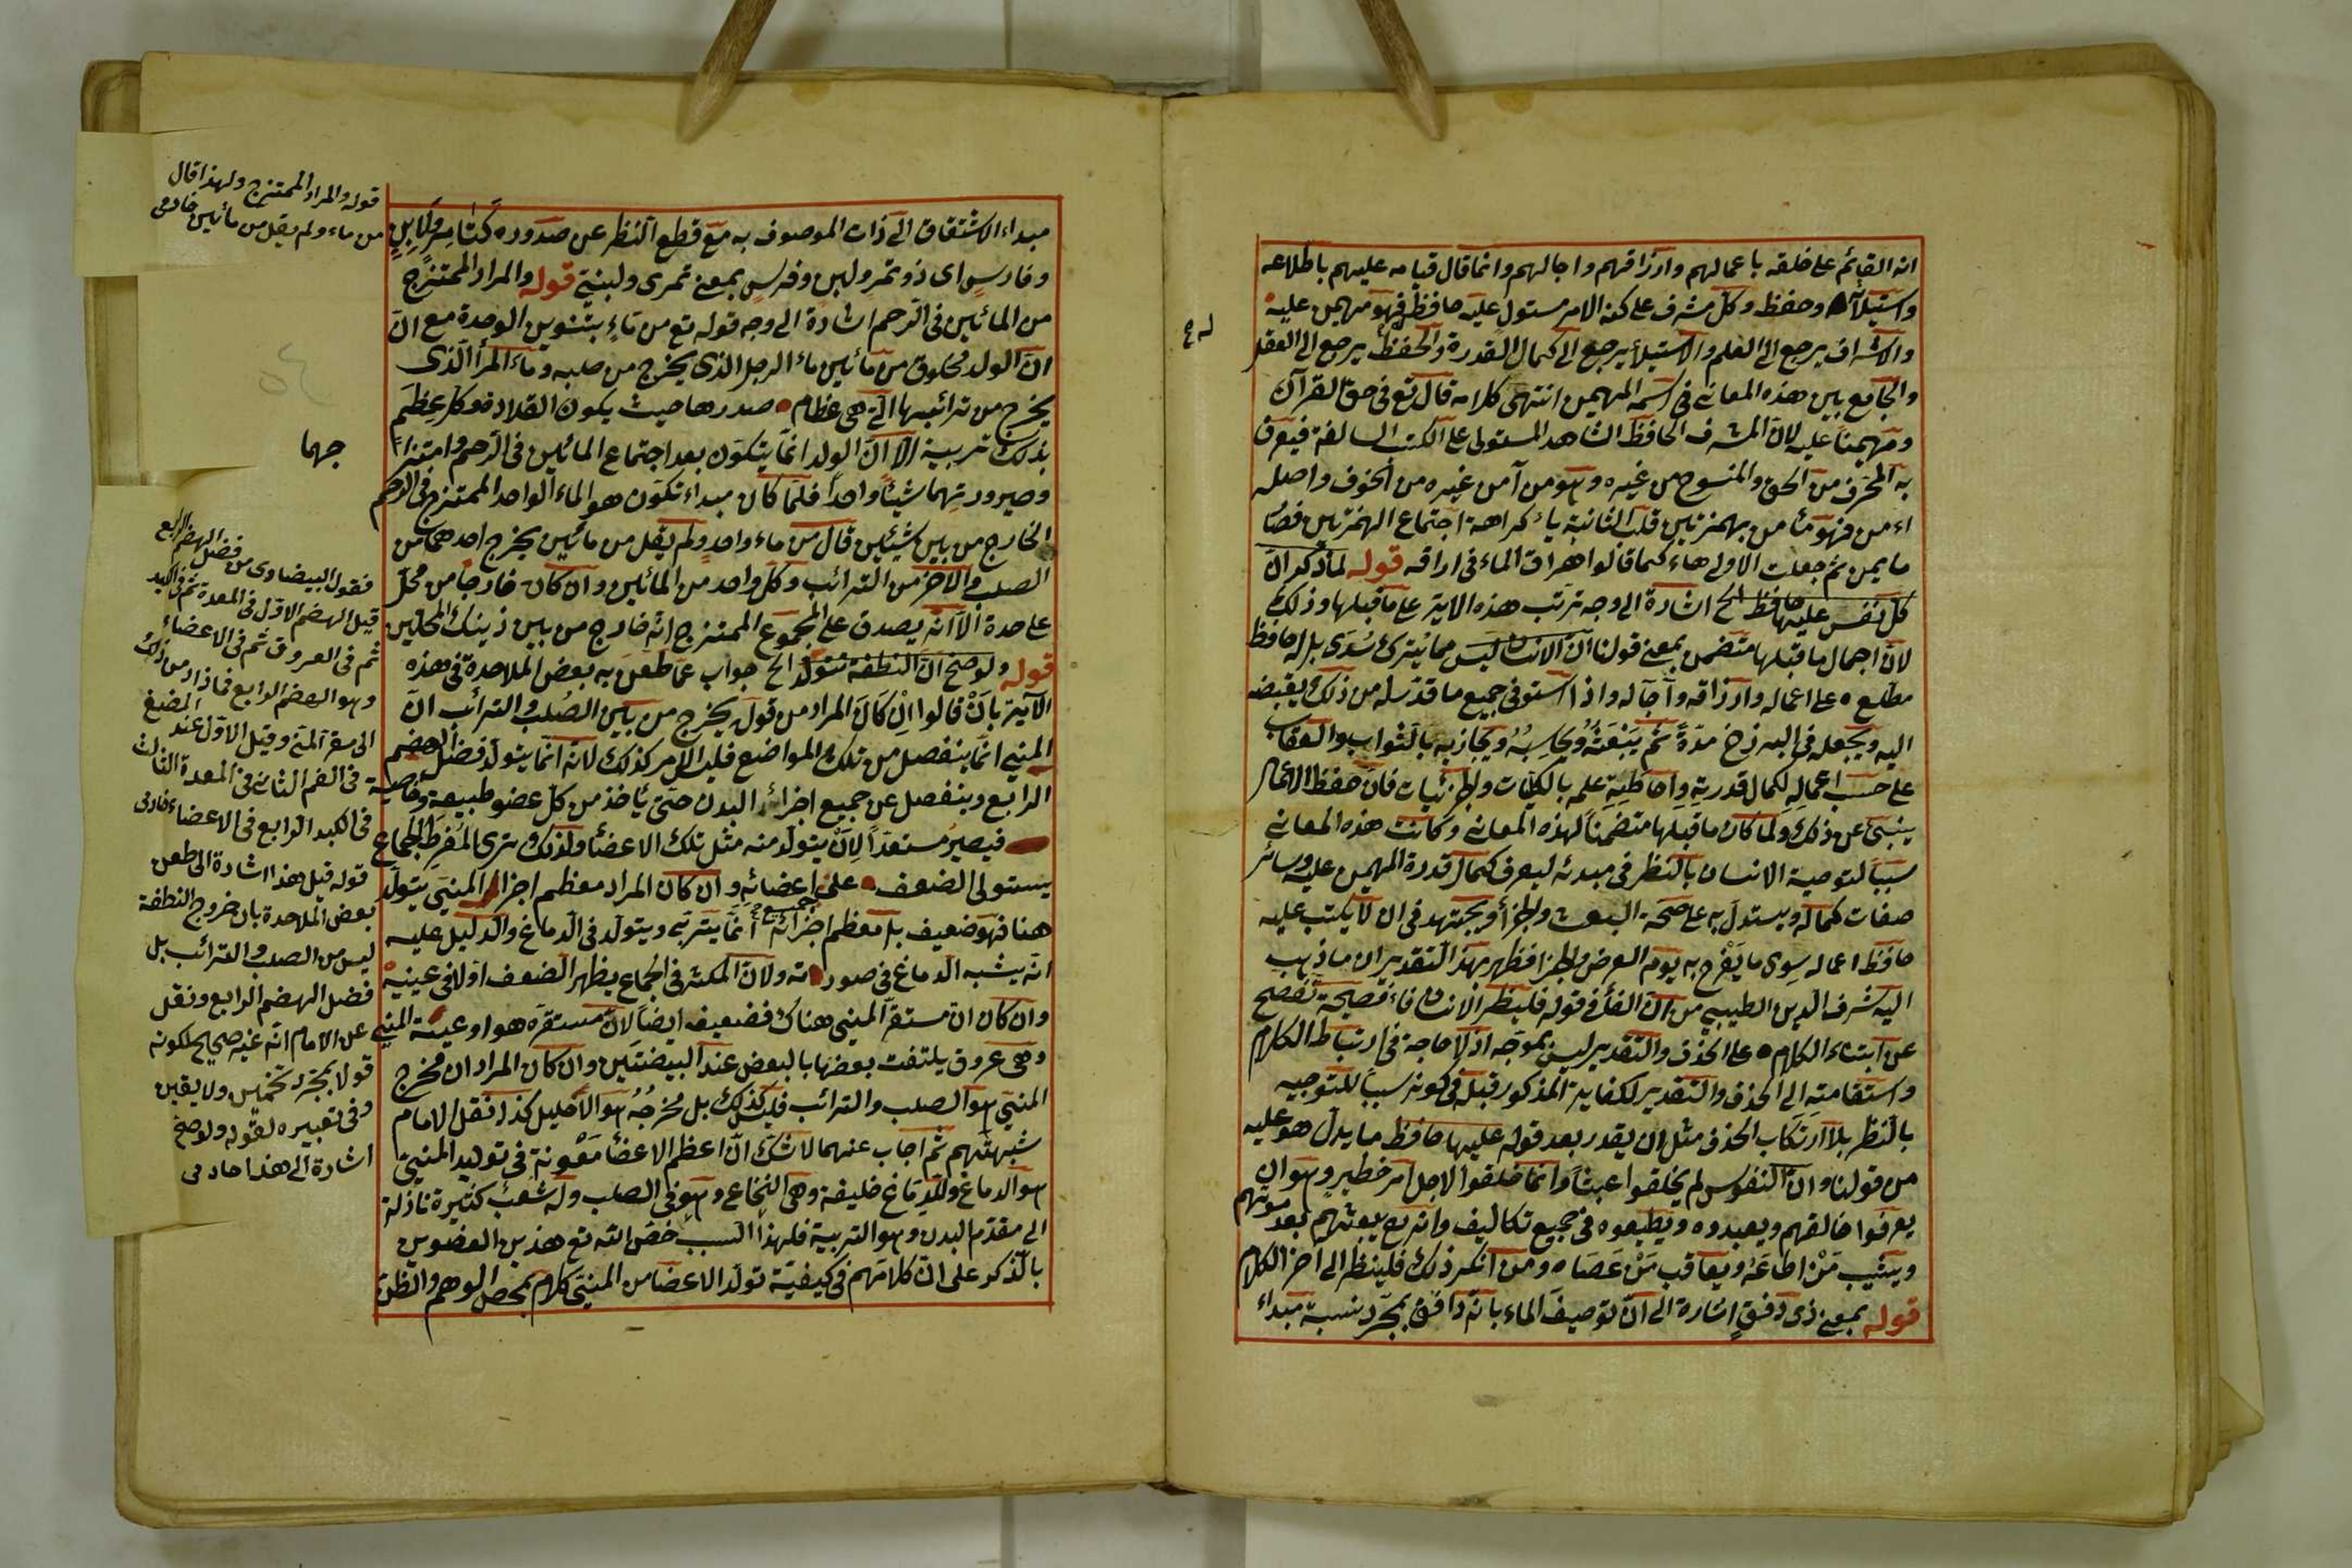 انه القائم على خلقه باعمالهم وارزاقهم واجالهم وانما قال قيامه عليهم باطلاعه
واستيلائه وحفظه وكل مشرف على كنه الامر مستول عليه حافظ فهو مهيمن عليه
والاشراف يرجع الى العلم والاستيلأ يرجع الى كمال القدرة والحفظ يرجع الى العقل
والجامع بين هذه المعانى فى اسمه المهيمن انتهى كلامه قال تع فى حق القرآن
ومهيمنا عليه لان المشرف الحافظ الشاهد المستولى على الكتب السالفة فيعرف
به المحرف من الحق والمنسوخ من غيره وهو من آمن غيره من الخوف واصله
اءمن فهو مأمن بهمزتين قلب الثانية ياء كراهة اجتماع الهمزتين فصار
مايمن ثم جعلت الاولى هاء كما قالوا اهراق الماء فى اراقه قوله لما ذكر ان
كل نفس عليها حافظ الخ اشارة الى وجه ترتب هذه الاية على ما قبلها وذلك
لان اجمال ما قبلها متضمن بمعنى قولنا ان الانسان ليس مما يُترك سُدى بل له حافظ
مطلع على اعماله وارزاقه وآجاله واذا استوفى جميع ما قدر له من ذلك يقبضه
اليه ويجعله فى البرزخ مدّةً ثم يَبْعَثُهُ ويُحاسِبُهُ ويجازيه بالثواب والعقاب
على حسب اعماله لكمال قدرته واحاطته علمه بالكليات والجزئيات فان حفظ الاعمال
ينبئ عن ذلك ولما كان ما قبلها متضمنا لهذه المعانى وكانت هذه المعانى
سببا لتوصية الانسان بالنظر فى مبدئه ليعرف كمال قدرة المهيمن عليه وسائر
صفات كماله ويستدل به على صحة البعث والجزأ ويجتهد فى ان لا يكتب عليه
حافظ اعماله سوى ما يَفْرح به يوم العرض والجزا فظهر بهذا التقدير ان ما ذهب
اليه شرف الدين الطيبى من ان الفأ فى قوله فلينظر الانسان فاء فصيحة تفصح
عن ابتداء الكلام على الحذف والتقدير ليس بموجّه اذ لا حاجة فى ارتباط الكلام
واستقامته الى الحذف والتقدير لكفاية المذكور قبله فى كونه سببا للتوجيه
بالنظر بلا ارتكاب الحذف مثل ان يقدر بعد قوله عليها حافظ ما يدل هو عليه
من قولنا وان النفوس لم يخلقوا عبثا وانما خلقوا لاجل امر خطير وهو ان
يعرفوا خالقهم ويعبدوه ويطيعوه فى جميع تكاليفه وانه تع يبعثهم بعد موتهم
ويثيب مَنْ اطاعَهُ ويعاقب مَنْ عَصَاه ومن انكر ذلك فلينظر الى اخر الكلام
قوله بمعنى ذى دفق اشارة الى ان توصيف الماء بانه دافق بمجرّد نسبة مبداء
مبداء الاشتقاق الى ذات الموصوف به مع قطع النظر عن صدوره كَتامِرٍ وَلابِنٍ
وفارسٍ اى ذو تمرٍ ولبنٍ وفرسٍ بمعنى تمرى ولبنى قوله والمراد الممتزج
من المائين فى الرحم اشارة الى وجه قوله تع من ماءٍ بتنوين الوحدة مع ان
ان الولد مخلوق من مائين ماء الرجل الذى يخرج من صلبه وماء المرأ الذى
يخرج من ترائبها التى هى عظام صدرها حيث يكون القلادة وكل عظم
بذلك تربية الا ان الولد انما يتكون بعد اجتماع المائين فى الرحم وامتزا
جهما
وصيرورتهما شيئا واحدا فلما كان مبداء تكون هو الماء الواحد الممتزج فى الرحم
الخارج من بين شيئين قال من ماء واحدٍ ولم يقل من مائين يخرج احدهما من
الصلب والاخر من الترائب وكل واحد من المائين وان كان خارجا من محل
على حدة الا انه يصدق على المجموع الممتزج انه خارج من بين ذينك المحلين
قوله ولو صح ان النطفة تتولد الخ جواب عما طعن به بعض الملاحدة فى هذه
الآية بأنْ قالوا اِنْ كانَ المراد من قوله يخرج من بين الصُلب والترائب ان
المنى انما ينفصل من تلك المواضع فليس الامر كذلك لانه انما يتولد فضل الهضم
الرابع وينفصل عن جميع اجزاء البدن حتى ياخذ من كل عضو طبيعة وخاصية
فيصيرُ مُستعدًّا لِاَنْ يتولد منه مثل تلك الاعضأ ولذلك ترى المُفرِط الجماع
يستولى الضعف على جميع اعضائه وان كان المراد معظم اجزاء المنى يتولد
هنا فهو ضعيف بل معظم اجزائه انما يتربى ويتولد فى الدماغ والدليل عليه
انه يشبه الدماغ فى صورته ولان المكثر فى الجماع يظهر الضعف اولا فى عينيه
وان كان ان مستقر المنى هناك فضعيف ايضا لان مستقره هو اوعية المنى
وهى عروق يلتفت بعضها بالبعض عند البيضتين وان كان المراد ان مخرج
المنى هو الصلب والترائب فليس كذلك بل مخرجُهُ هو الاحليل كذا نقل الامام
شبهتهم ثم اجاب عنهما لا شك ان اعظم الاعضأ مَعُونَةٍ فى توليد المنى
هو الدماغ وللدماغ خليفة وهى النخاع وهو فى الصلب وله شُعَبٌ كثيرة نازلة
الى مقدم البدن وهو التربية فلهذا السبب خص الله تع هذين العضوين
بالذكر على ان كلامهم فى كيفية تولد الاعضا من المنى كلام بمحض الوهم والظن
قوله والمراد الممتزج ولهذا قال
من ماء ولم يقل من مائين خادمى
فقول البيضاوى من فضل الهضم الرابع
قيل الهضم الاول فى المعدة ثم فى الكبد
ثم فى العروق ثم فى الاعضاء
وهو الهضم الرابع فما زاد من ذلك
الى مقر المنى وقيل الاول عند المضغ
فى الفم الثانى فى المعدة الثالث
فى الكبد الرابع فى الاعضاء خادمى
قوله قيل هذا اشارة الى طعن
بعض الملاحدة بان خروج النطفة
ليس من الصلب والترائب بل
فضل الهضم الرابع ونقل
عن الامام انه غير صحيح لكونه
قولا بمجرد تخمين ولا يقين
وفى تعبيره لقوله ولو صح
اشارة الى هذا خادمى